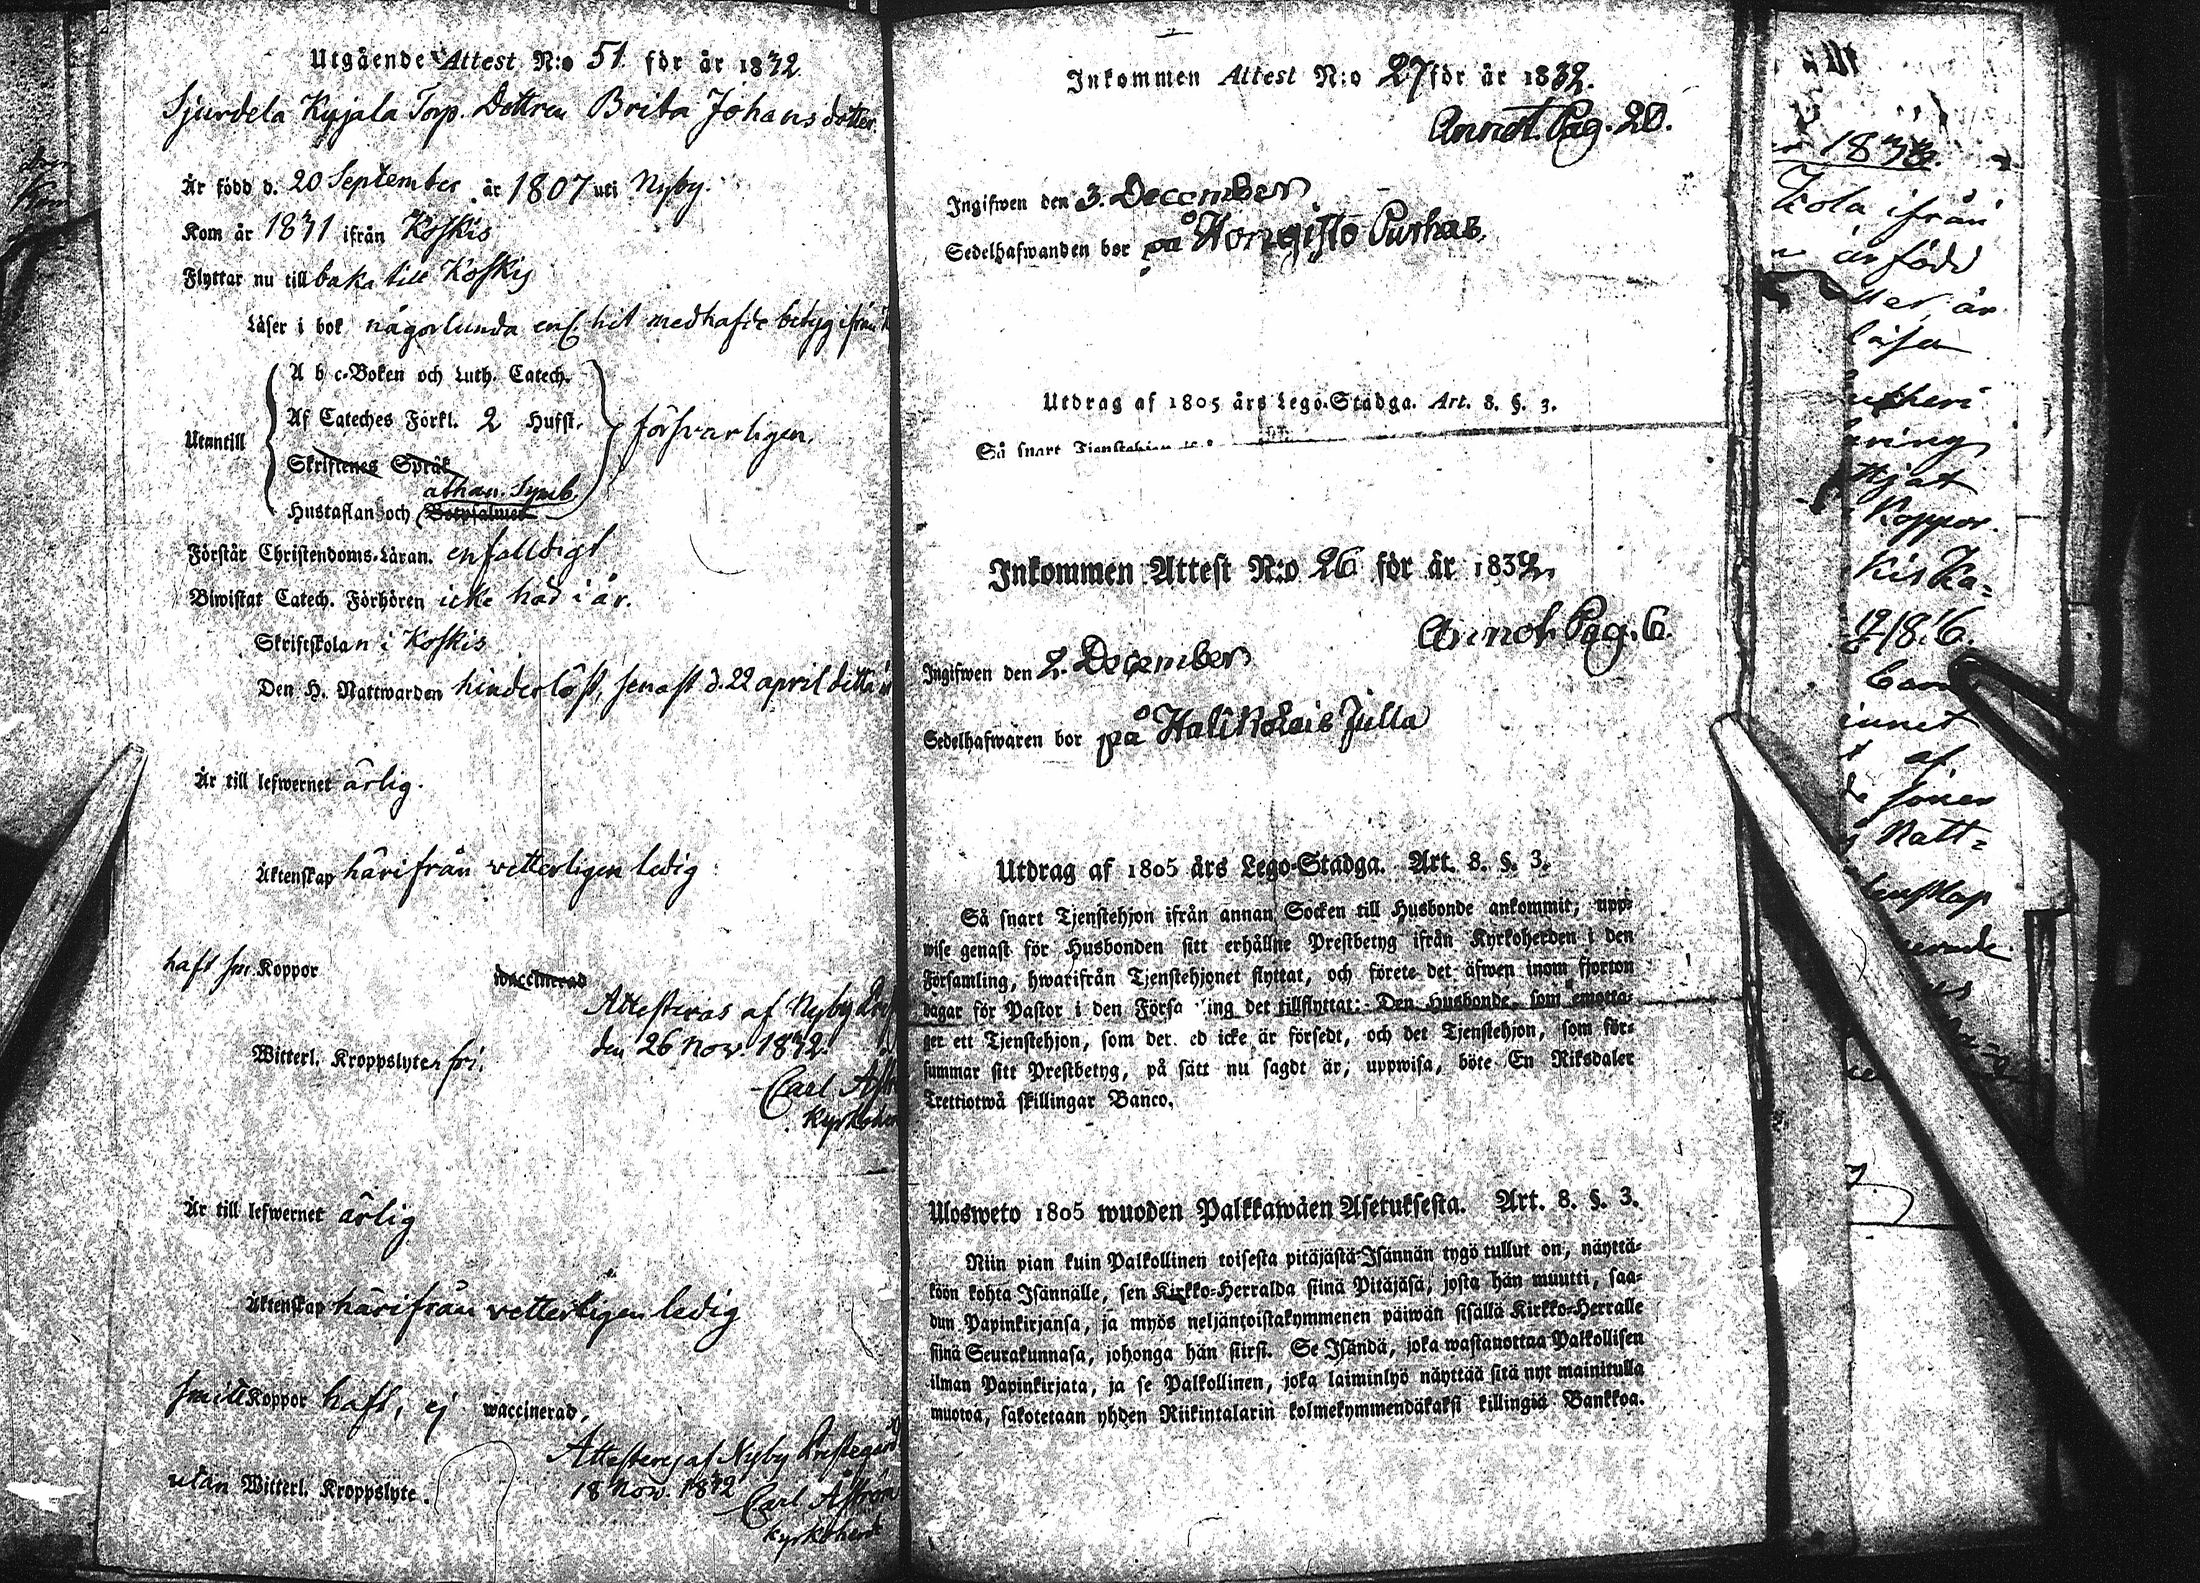 Utgående Attest N:o 51 för år 1832
Sjurdela Kyjala Torp. Dottren Brita Johansdotter
Är född d. 20 September år 1807 uti Nyby.
Kom år 1831 ifrån Koskis
Flyttar nu tillbaka till Koskis
Läser i bok någorlunda enl. hit medhafde betyg ifrån
A b c-Boken och Luth. Catech.
Utantill
Af Cateches Förkl. 2 Hufst.
försvarligen.
Skriftenes Språk
athan. Symb.
Hustaflan och Botpsalmer
Förstår Christendoms-Läran. enfaldigt
Biwistat Catech. Förhören icke håd i år.
Skriftskolan i Koskis
Den H. Nattwarden hinderlöst, senast d. 22 april detta
Är till lefwernet ärlig.
Äktenskap härifrån vetterligen ledig
haft sm. Koppor
waccinerad
Attesteras af Nyby
den 26 Nov. 1832.
Witterl. Kroppslyten fri.
Carl
Är till lefwernet ärlig
Äktenskap härifrån vetterligen ledig
smittKoppor haft, ej waccinerad,
Attesteras af Nyby Prestegård
18 Nov. 1832
utan Witterl. Kroppslyte.
Carl Åström
Kyrkoherde
Inkommen Attest N:o 27 för år 1832.
Annot. Pag. 20.
Ingifwen den 3. December
Sedelhafwanden bor på Hongisto Purhas.
Utdrag af 1805 års Lego-Stadga. Art. 8. §. 3.
Så snart Tjenstehjon
Inkommen Attest N:o 26 för år 1832.
Annot. Pag. 6.
Ingifwen den 2. December
Sedelhafwaren bor på Halikkois Julla
Utdrag af 1805 års Lego-Stadga. Art. 8. §. 3.
Så snart Tjenstehjon ifrån annan Socken till Husbonde ankommit, upp-
wise genast för Husbonden sitt erhållne Prestbetyg ifrån Kyrkoherden i den
Församling, hwarifrån Tjenstehjonet flyttat, och förete det äfwen inom fjorton
dagar för Pastor i den Församling det tillflyttat: Den Husbonde, som emotta-
ger ett Tjenstehjon, som dermed icke är försedt, och det Tjenstehjon, som för-
summar sitt Prestbetyg, på sätt nu sagdt är, uppwisa, böte En Riksdaler
Trettiotwå skillingar Banco.
Ulosweto 1805 wuoden Palkkawäen Asetuksesta. Art. 8. §. 3.
Niin pian kuin Palkollinen toisesta pitäjästä Isännän tygö tullut on, näyttä-
köön kohta Isännälle, sen Kirkko-Herralda siinä Pitäjäsä, josta hän muutti, saa-
dun Papinkirjansa, ja myös neljäntoistakymmenen päiwän sisällä Kirkko-Herralle
siinä Seurakunnasa, johonga hän siirsi. Se Isändä, joka wastanottaa Palkollisen
ilman Papinkirjata, ja se Palkollinen, joka laiminlyö näyttää sitä nyt mainitulla
muotoa, sakotetaan yhden Riikintalarin kolmekymmendäkaksi killingiä Bankkoa.
1833.
ifrån
är född
är
läsa
Koppor.
af
Natt-